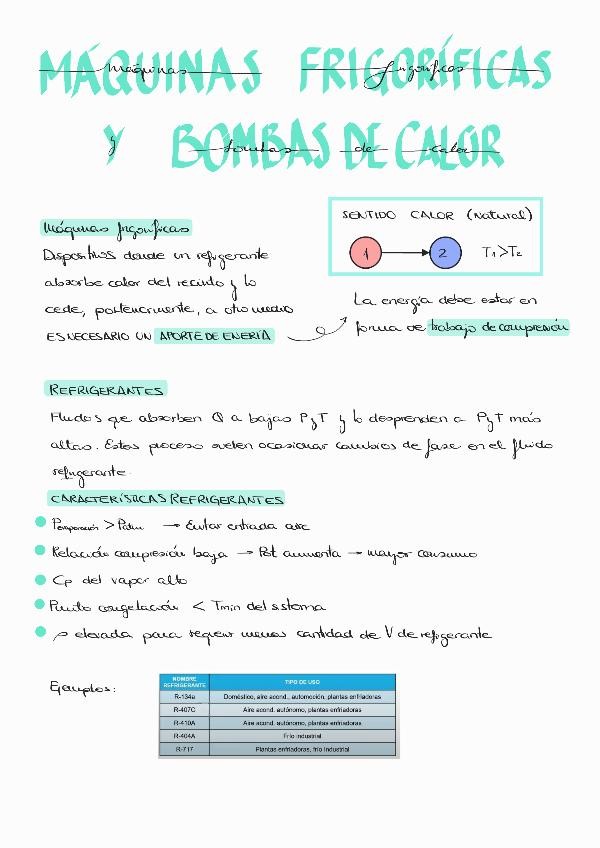 MÁQUINAS FRIGORÍFICAS
máquinas frigoríficas
Y BOMBAS DE CALOR
y bombas de calor
SENTIDO CALOR (Natural)
1 2 T1>T2
Máquinas frigoríficas
Dispositivos donde un refrigerante
absorbe calor del recinto y lo
cede, posteriormente, a otro medio
ES NECESARIO UN APORTE DE ENERÍA
La energía debe estar en
forma de trabajo de compresión
REFRIGERANTES
Fluidos que absorben Q a bajas P y T y lo desprenden a P y T más
altas. Estos proceso suelen ocasionar cambios de fase en el fluido
refrigerante.
CARACTERÍSTICAS REFRIGERANTES
Pevaporación > Patm → Evitar entrada aire
Relación compresión baja → Pot aumenta → mayor consumo
Cp del vapor alto
Punto congelación < Tmin del sistema
ρ elevada para requerir menos cantidad de V de refrigerante
Ejemplos:
NOMBRE REFRIGERANTE TIPO DE USO
R-134a Doméstico, aire acond., automoción, plantas enfriadoras
R-407C Aire acond. autónomo, plantas enfriadoras
R-410A Aire acond. autónomo, plantas enfriadoras
R-404A Frío industrial
R-717 Plantas enfriadoras, frío Industrial